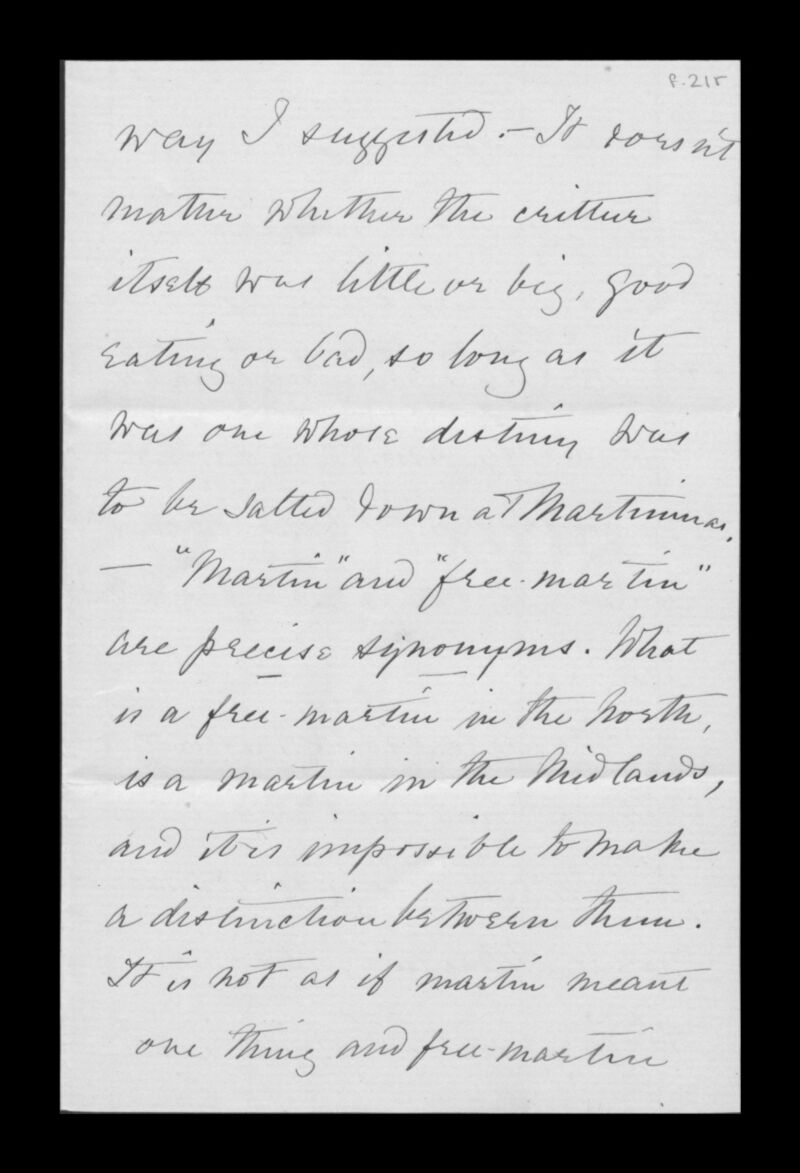 P. 215
way I suggested. — It doesn't
matter whether the crittur
itself was little or big, good
eating or bad, so long as it
was one whose destiny was
to be salted down at Martinmas.
— "Martin" and "free-martin"
are precise synonyms. What
is a free-martin in the North,
is a martin in the Midlands,
and it is impossible to make
a distinction between them.
It is not as if martin meant
one thing and free-martin